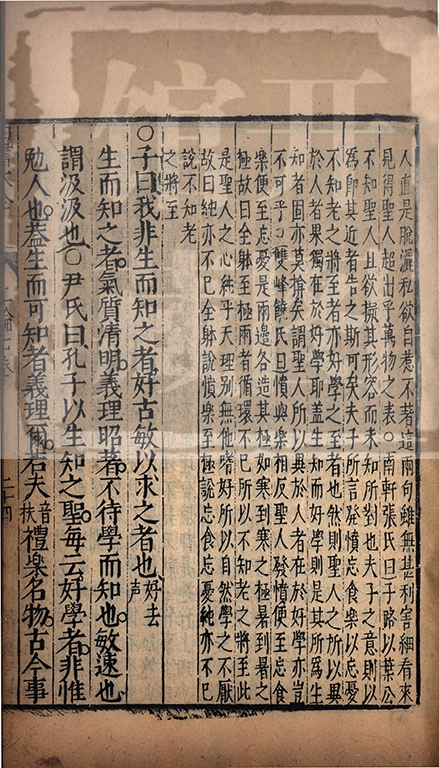 人直是脫灑私欲自惹不著這兩句雖無甚利害細看來
見得聖人超出乎萬物之表○南軒張氏曰子路以葉公
不知聖人且欲擬其形容而未知所對也夫子之意則以
為即其近者告之斯可矣夫子所言發憤忘食樂以忘憂
不知老之將至者亦好學之至者也然則聖人之所以異
於人者果獨在於好學耶蓋生知而好學則是其所為生
知者固亦莫揜矣謂聖人所以異於人者在於好學亦豈
不可乎○雙峰饒氏曰憤與樂相反聖人發憤便至忘食
樂便至忘憂是兩邊各造其極如寒到寒之極暑到暑之
極故曰全躰至極兩者循環不已所以不知老之將至此
是聖人之心純乎天理別無他嗜好所以自然學之不厭
故曰純亦不已全躰說憤樂至極說忘食忘憂純亦不已
說不知老
之將至
○子曰我非生而知之者好古敏以求之者也好去
聲
生而知之者氣質清明義理昭著不待學而知也敏速也
謂汲汲也○尹氏曰孔子以生知之聖每云好學者非惟
勉人也蓋生而可知者義理爾若夫音
扶禮樂名物古今事